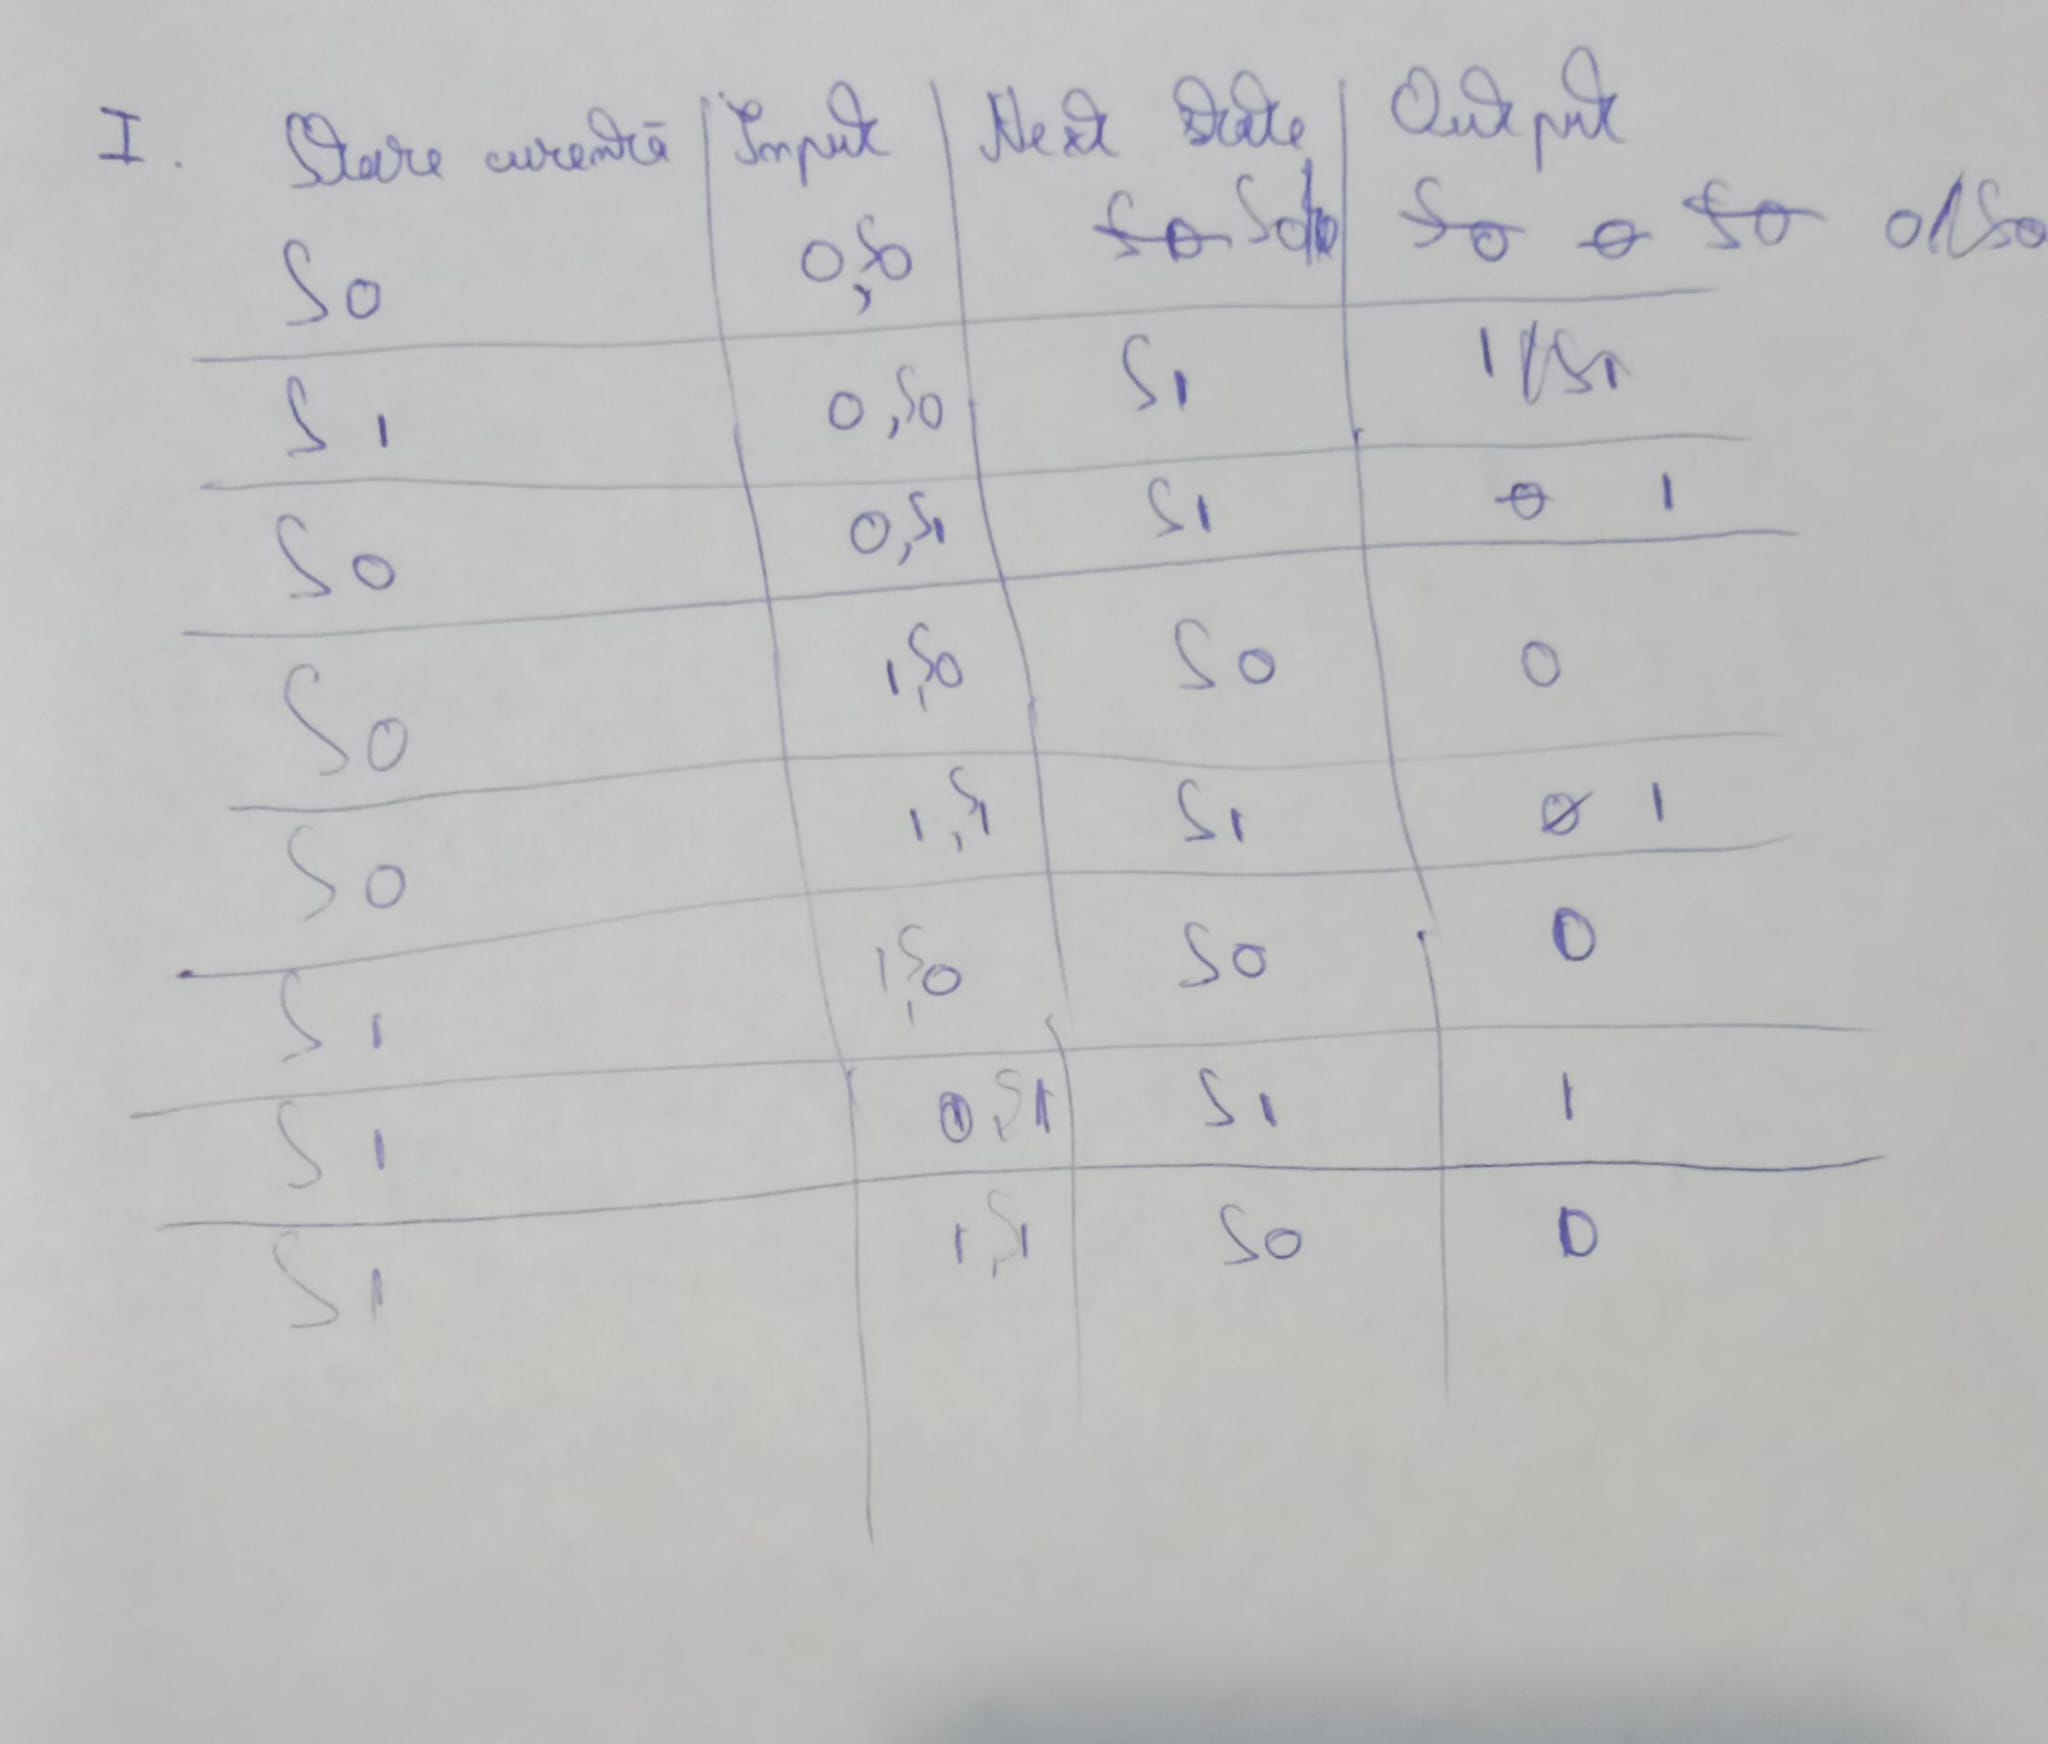 I. Stare curentă Input Next State Output
S0 0,S0 S0 S0 S0 0 S0 0/S0
S1 0,S0 S1 1/S1
S0 0,S1 S1 0 1
S0 1,S0 S0 0
S0 1,S1 S1 0 1
S1 1,S0 S0 0
S1 0,S1 S1 1
S1 1,S1 S0 0